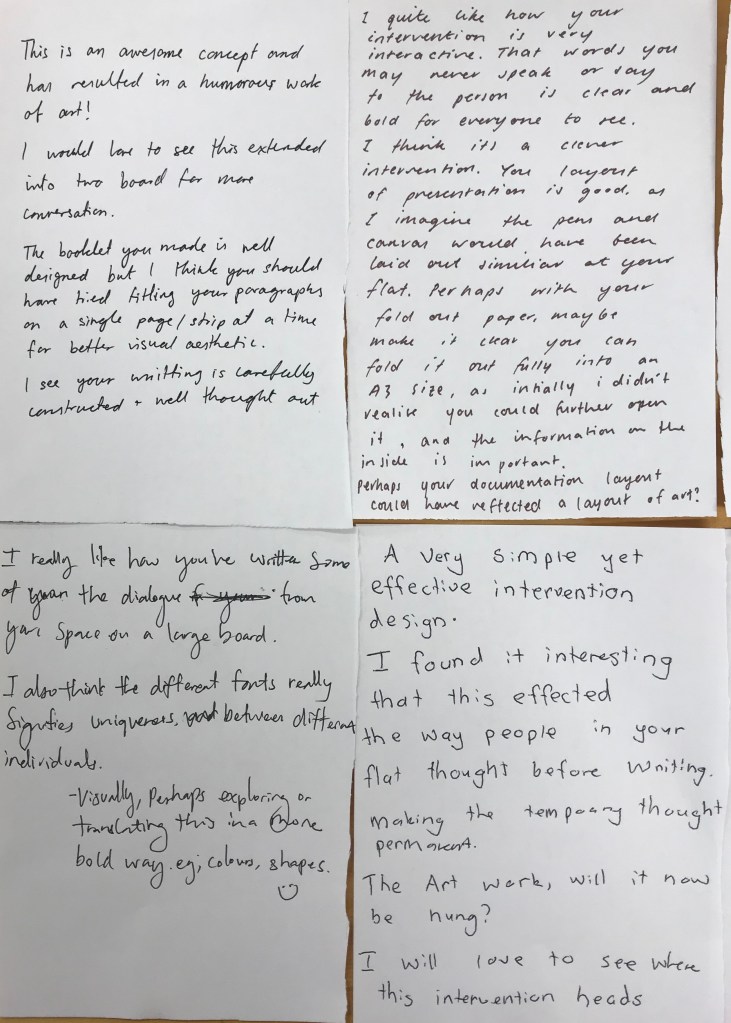 This is an awesome concept and
has resulted in a humorous work
of art!
I would love to see this extended
into two board for more
conversation.
The booklet you made is well
designed but I think you should
have tied fitting your paragraphs
on a single page/strip at a time
for better visual aesthetic.
I see your writting is carefully
constructed + well thought out
I quite like how your
intervention is very
interactive. That words you
may never speak or say
to the person is clear and
bold for everyone to see.
I think its a clever
intervention. You layout
of presentation is good. as
I imagine the pens and
canvas would have been
laid out similiar at your
flat. Perhaps with your
fold out paper, maybe
make it clear you can
fold it out fully into an
A3 size, as intially i didn't
realise you could further open
it, and the information on the
inside is important.
Perhaps your documentation layout
could have reflected a layout of art?
I really like how you've written some
of the dialogue from
your space on a large board.
I also think the different fonts really
signifies uniqueness, between different
individuals.
-Visually, Perhaps exploring or
translating this in a more
bold way. eg; colours, shapes.
A very simple yet
effective intervention
design.
I found it interesting
that this effected
the way people in your
flat thought before writing.
making the tempoary thought
permanent.
The Art work, will it now
be hung?
I will love to see where
this intervention heads